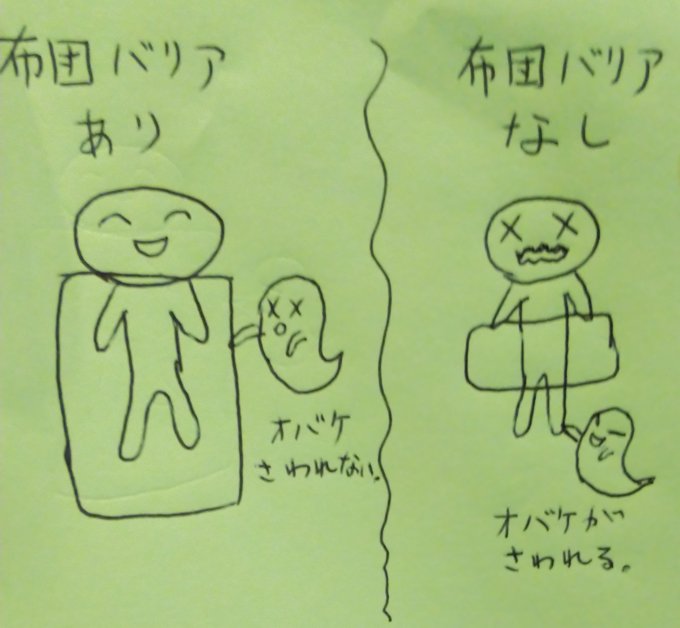 布団バリア
あり
オバケ
さわれない。
布団バリア
なし
オバケが
さわれる。